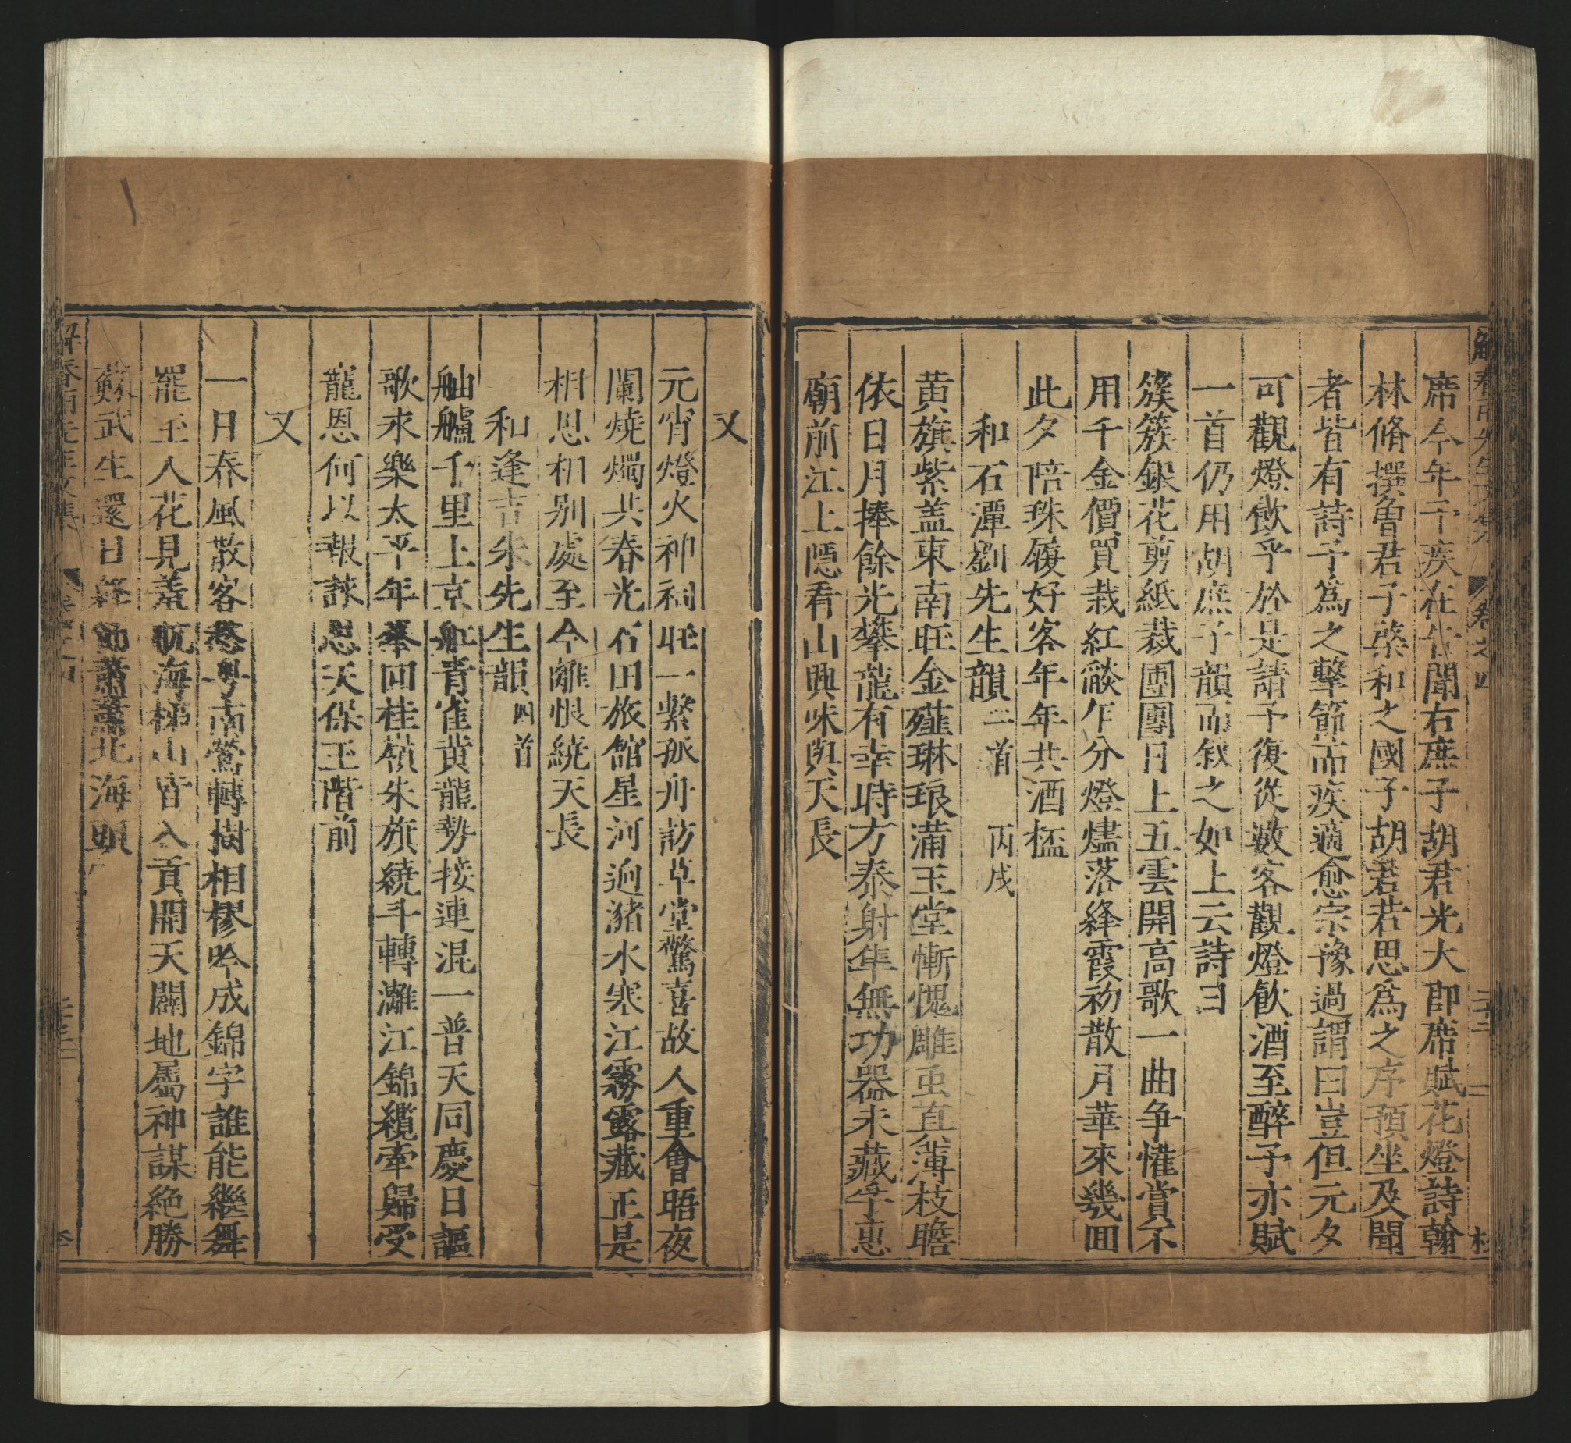 席今年予疾在告聞右庶子胡君光大即席賦花燈詩翰
林脩撰曾君子棨和之國子胡君若思為之序預坐及聞
者皆有詩予為之擊節而疾適愈宗豫過謂曰豈但元夕
可觀燈飲乎於是請予復從數客觀燈飲酒至醉予亦賦
一首仍用胡庶子韻而叙之如上云詩曰
簇簇銀花剪紙裁團團月上五雲開高歌一曲争懽賞不
用千金價買栽紅燄乍分燈燼落絳霞初散月華來幾回
此夕陪珠履好客年年共酒盃
和石潭劉先生韻二首 丙戌
黄旗紫盖東南旺金殿琳琅滿玉堂慚愧雕虫直薄枝瞻
依日月捧餘光攀龍有幸時方泰射隼無功器未藏孚惠
廟前江上隱看山興味與天長
又
元宵燈火神祠旺一繫孤舟訪草堂驚喜故人重會晤夜
闌燒燭共春光石田旅館星河迥瀦水寒江霧露藏正是
相思相别處至今離恨繞天長
和逢吉朱先生韻四首
舳艫千里上京舡青雀黄龍勢接連混一普天同慶日謳
歌永樂太平年峯回桂嶺朱旗繞斗轉灕江錦纜牽歸受
寵恩何以報竦思天保玉階前
又
一日春風散客愁粤南鶯轉樹相樛吟成錦字誰能繼舞
罷玉人花見羞航海梯山皆入貢開天闢地屬神謀絶勝
蘇武生還日 節蕭蕭北海頭
卷之四